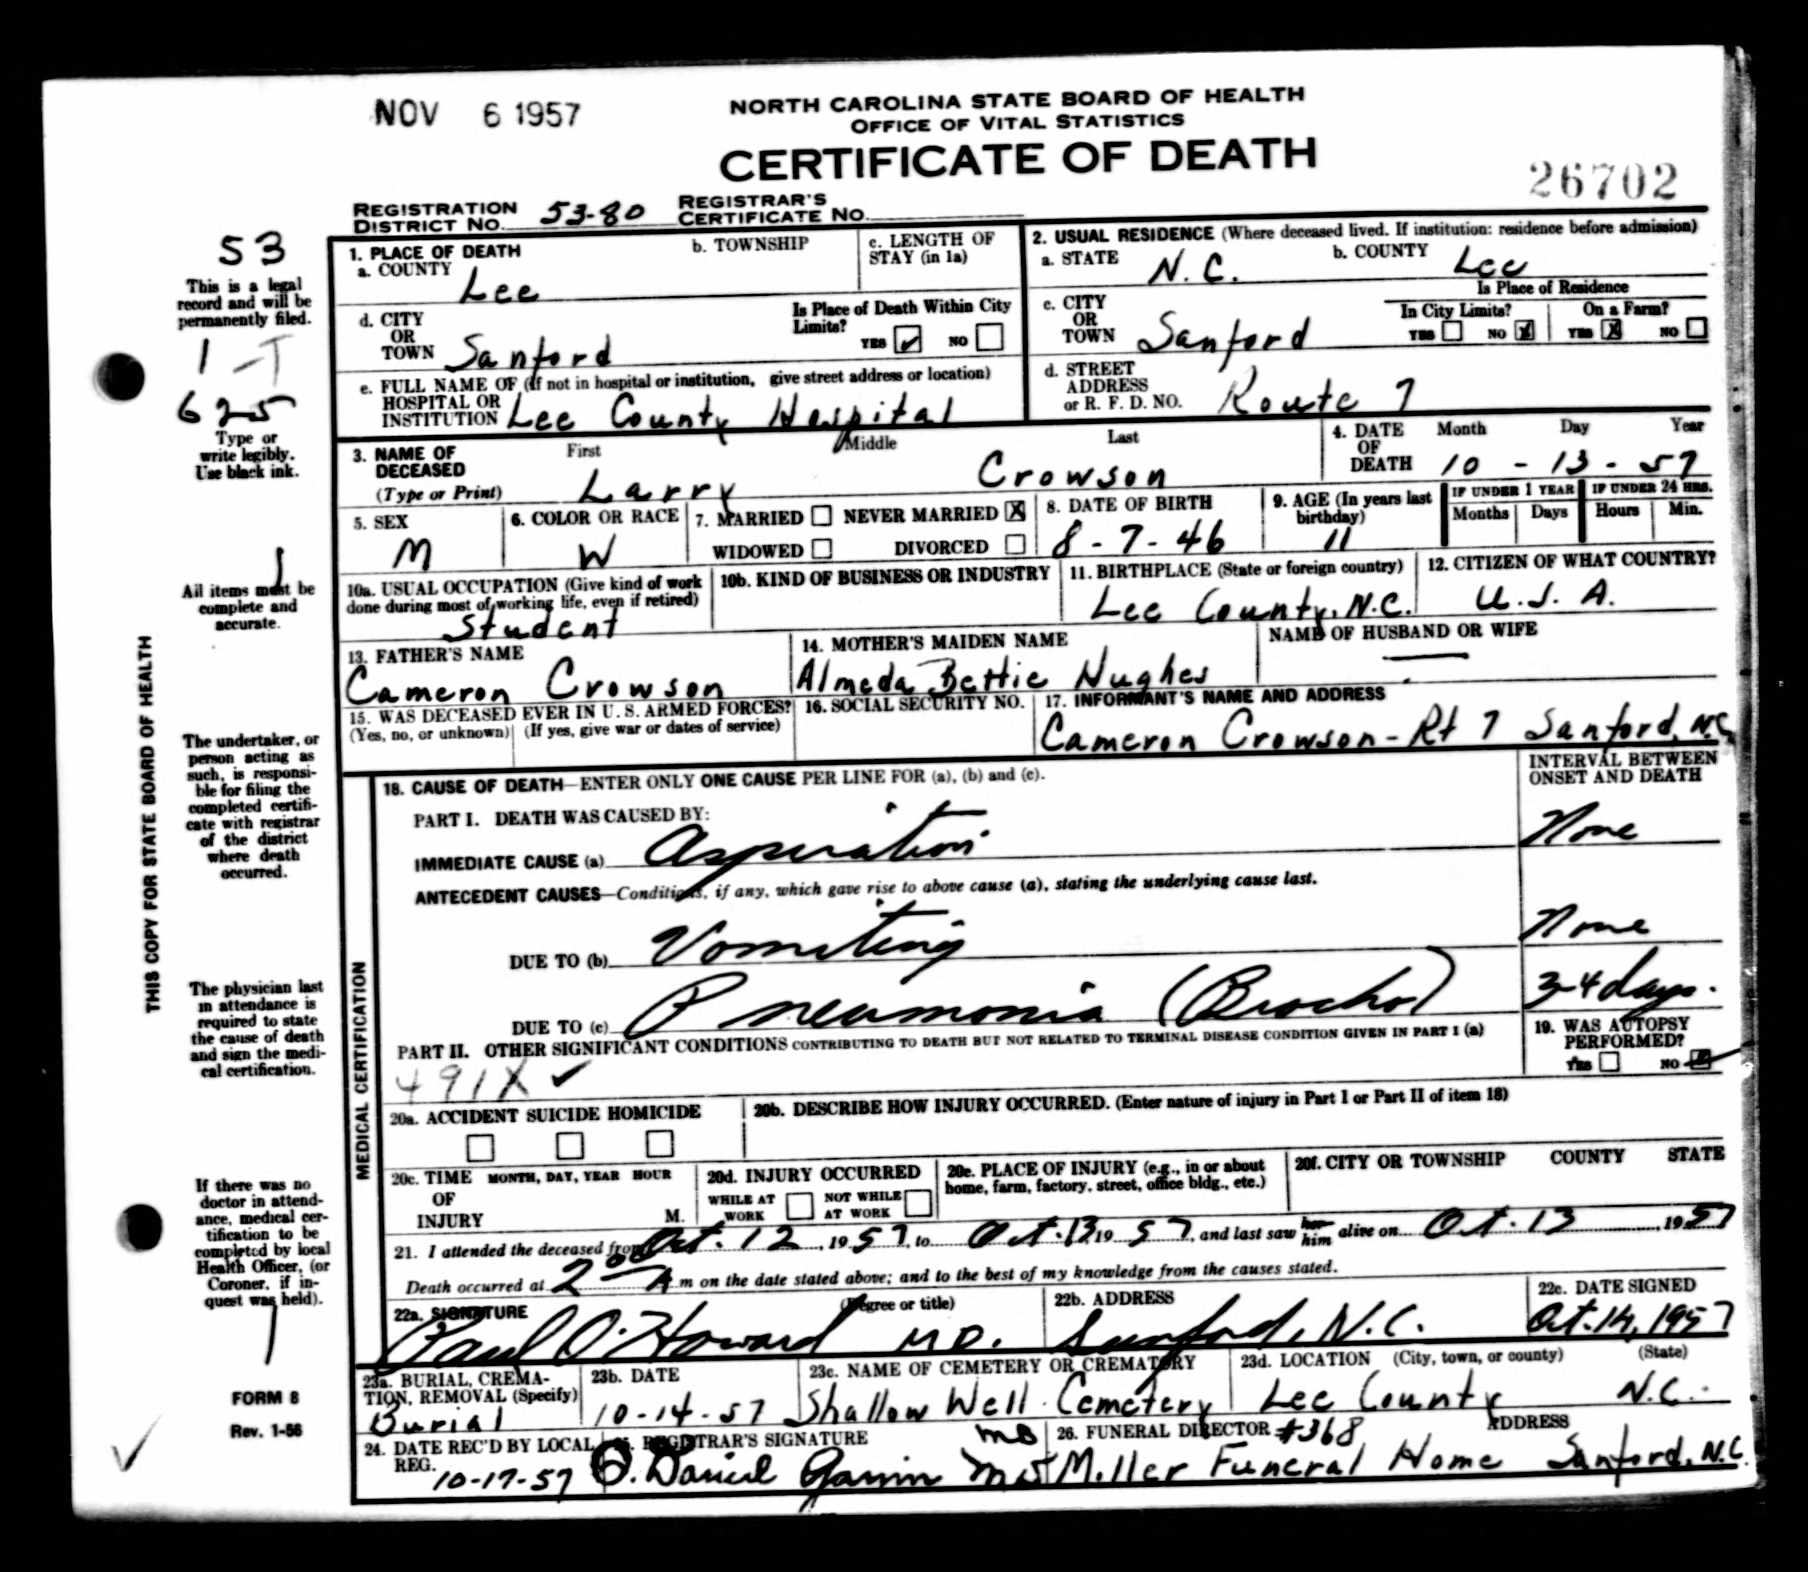 NOV 6 1957
NORTH CAROLINA STATE BOARD OF HEALTH
OFFICE OF VITAL STATISTICS
CERTIFICATE OF DEATH
26702
REGISTRATION DISTRICT NO. 53-80 REGISTRAR'S CERTIFICATE NO.
53
This is a legal
record and will be
permanently filed.
1
625
Type or
write legibly.
Use black ink.
All items must be
complete and
accurate.
The undertaker, or
person acting as
such, is responsi-
ble for filing the
completed certifi-
cate with registrar
of the district
where death
occurred.
The physician last
in attendance is
required to state
the cause of death
and sign the medi-
cal certification.
If there was no
doctor in attend-
ance, medical cer-
tification to be
completed by local
Health Officer, (or
Coroner, if in-
quest was held).
FORM 8
Rev. 1-56
THIS COPY FOR STATE BOARD OF HEALTH
1. PLACE OF DEATH
a. COUNTY Lee
b. TOWNSHIP
c. LENGTH OF STAY (in 1a)
d. CITY OR TOWN Sanford
Is Place of Death Within City Limits? YES ✓ NO
e. FULL NAME OF (If not in hospital or institution, give street address or location)
HOSPITAL OR INSTITUTION Lee County Hospital
2. USUAL RESIDENCE (Where deceased lived. If institution: residence before admission)
a. STATE N.C. b. COUNTY Lee
c. CITY OR TOWN Sanford
Is Place of Residence
In City Limits? YES NO X On a Farm? YES X NO
d. STREET ADDRESS or R. F. D. NO. Route 7
3. NAME OF DECEASED (Type or Print)
First Middle Last
Larry Crowson
4. DATE OF DEATH Month Day Year
10 - 13 - 57
5. SEX M
6. COLOR OR RACE W
7. MARRIED NEVER MARRIED X
WIDOWED DIVORCED
8. DATE OF BIRTH 8-7-46
9. AGE (In years last birthday) 11
IF UNDER 1 YEAR Months Days
IF UNDER 24 HRS. Hours Min.
10a. USUAL OCCUPATION (Give kind of work done during most of working life, even if retired)
Student
10b. KIND OF BUSINESS OR INDUSTRY
11. BIRTHPLACE (State or foreign country)
Lee County, N.C.
12. CITIZEN OF WHAT COUNTRY?
U.S.A.
13. FATHER'S NAME
Cameron Crowson
14. MOTHER'S MAIDEN NAME
Almeda Bettie Hughes
NAME OF HUSBAND OR WIFE
15. WAS DECEASED EVER IN U. S. ARMED FORCES?
(Yes, no, or unknown) (If yes, give war or dates of service)
16. SOCIAL SECURITY NO.
17. INFORMANT'S NAME AND ADDRESS
Cameron Crowson - Rt 7 Sanford, N.C.
MEDICAL CERTIFICATION
18. CAUSE OF DEATH—ENTER ONLY ONE CAUSE PER LINE FOR (a), (b) and (c).
INTERVAL BETWEEN ONSET AND DEATH
PART I. DEATH WAS CAUSED BY:
IMMEDIATE CAUSE (a) Aspiration None
ANTECEDENT CAUSES—Conditions, if any, which gave rise to above cause (a), stating the underlying cause last.
DUE TO (b) Vomiting None
DUE TO (c) Pneumonia (Brocho) 3-4 days.
PART II. OTHER SIGNIFICANT CONDITIONS CONTRIBUTING TO DEATH BUT NOT RELATED TO TERMINAL DISEASE CONDITION GIVEN IN PART I (a)
491X ✓
19. WAS AUTOPSY PERFORMED?
YES NO
20a. ACCIDENT SUICIDE HOMICIDE
20b. DESCRIBE HOW INJURY OCCURRED. (Enter nature of injury in Part I or Part II of item 18)
20c. TIME OF INJURY MONTH, DAY, YEAR HOUR M.
20d. INJURY OCCURRED
WHILE AT WORK NOT WHILE AT WORK
20e. PLACE OF INJURY (e.g., in or about home, farm, factory, street, office bldg., etc.)
20f. CITY OR TOWNSHIP COUNTY STATE
21. I attended the deceased from Oct. 12, 1957, to Oct. 13, 1957, and last saw her him alive on Oct. 13, 1957
Death occurred at 2 00 A.m on the date stated above; and to the best of my knowledge from the causes stated.
22a. SIGNATURE (Degree or title)
Paul O. Howard M.D.
22b. ADDRESS
Sanford, N.C.
22c. DATE SIGNED
Oct. 14, 1957
23a. BURIAL, CREMATION, REMOVAL (Specify)
Burial
23b. DATE
10-14-57
23c. NAME OF CEMETERY OR CREMATORY
Shallow Well Cemetery
23d. LOCATION (City, town, or county) (State)
Lee County N.C.
24. DATE REC'D BY LOCAL REG.
10-17-57
25. REGISTRAR'S SIGNATURE
26. FUNERAL DIRECTOR #368 ADDRESS
Miller Funeral Home Sanford, N.C.